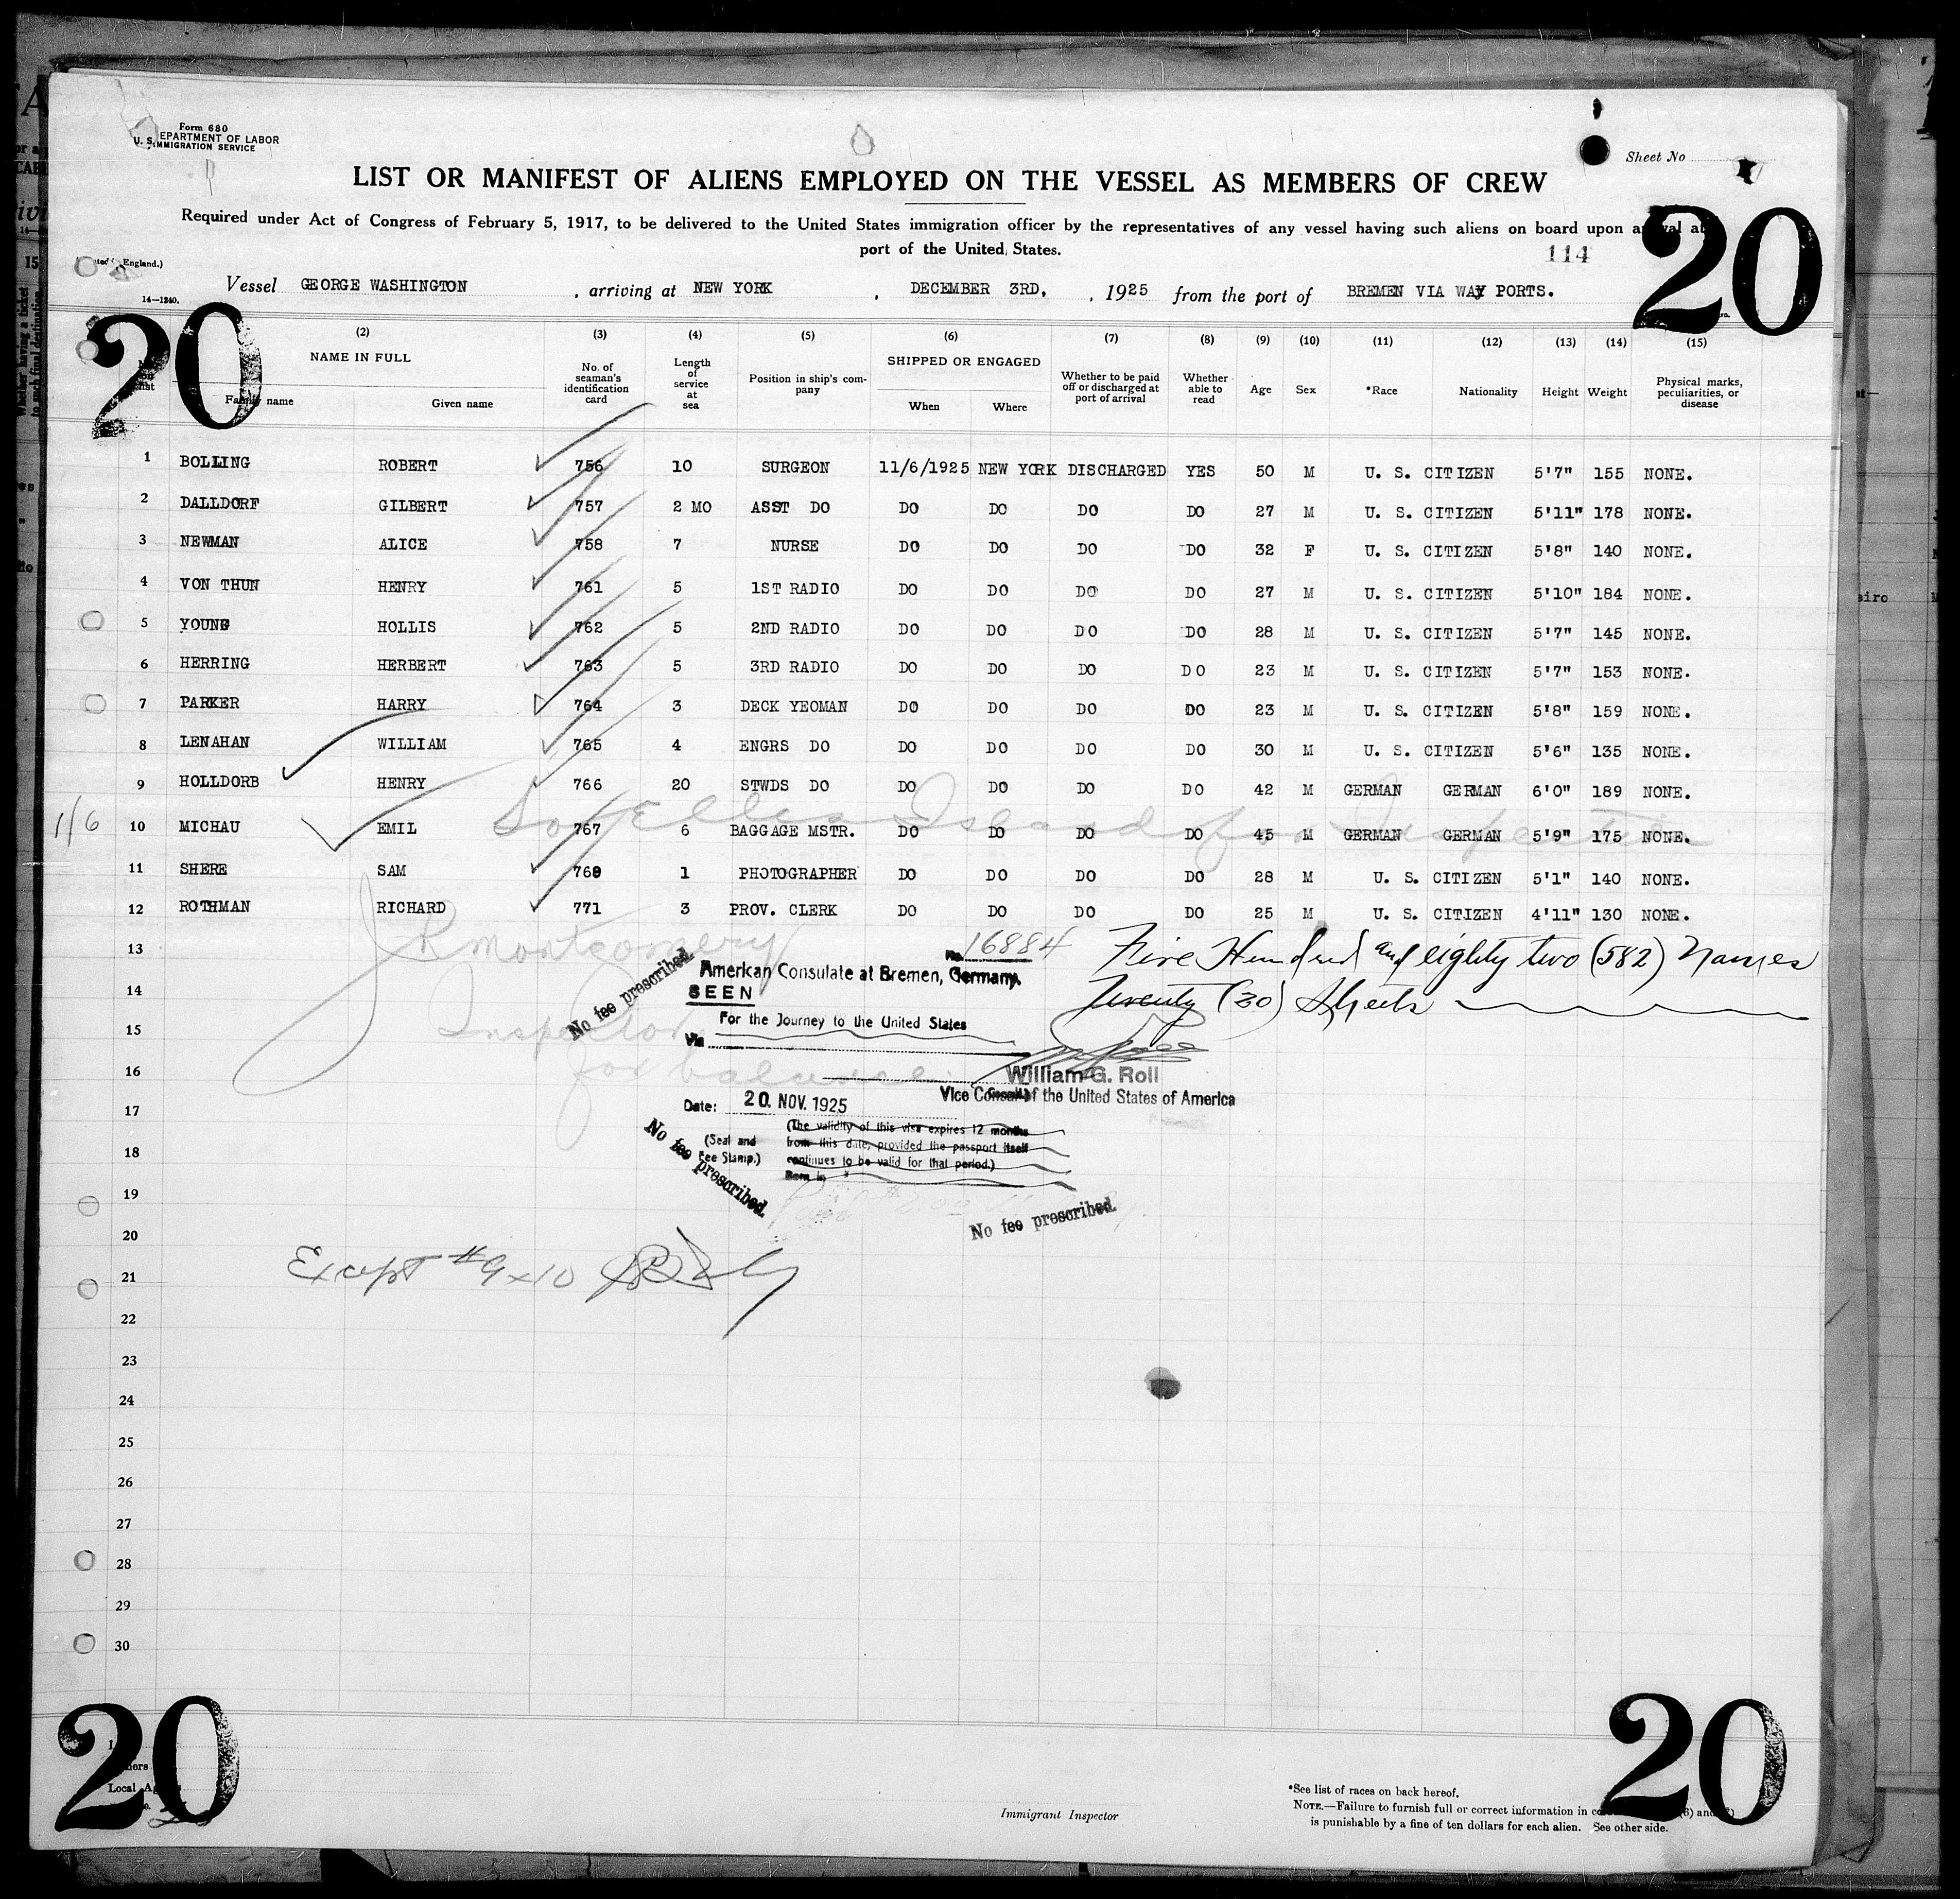 Form 680
U. S. DEPARTMENT OF LABOR
IMMIGRATION SERVICE
Sheet No
LIST OR MANIFEST OF ALIENS EMPLOYED ON THE VESSEL AS MEMBERS OF CREW
Required under Act of Congress of February 5, 1917, to be delivered to the United States immigration officer by the representatives of any vessel having such aliens on board upon arrival at
port of the United States.
114
20
20
England.)
14—1240.
Vessel GEORGE WASHINGTON , arriving at NEW YORK , DECEMBER 3RD, , 1925 from the port of BREMEN VIA WAY PORTS.
(2) (3) (4) (5) (6) (7) (8) (9) (10) (11) (12) (13) (14) (15)
NAME IN FULL No. of seaman's identification card Length of service at sea Position in ship's company SHIPPED OR ENGAGED Whether to be paid off or discharged at port of arrival Whether able to read Age Sex *Race Nationality Height Weight Physical marks, peculiarities, or disease
list Family name Given name When Where
1 BOLLING ROBERT 756 10 SURGEON 11/6/1925 NEW YORK DISCHARGED YES 50 M U. S. CITIZEN 5'7" 155 NONE.
2 DALLDORF GILBERT 757 2 MO ASST DO DO DO DO DO 27 M U. S. CITIZEN 5'11" 178 NONE.
3 NEWMAN ALICE 758 7 NURSE DO DO DO DO 32 F U. S. CITIZEN 5'8" 140 NONE.
4 VON THUN HENRY 761 5 1ST RADIO DO DO DO DO 27 M U. S. CITIZEN 5'10" 184 NONE.
5 YOUNG HOLLIS 762 5 2ND RADIO DO DO DO DO 28 M U. S. CITIZEN 5'7" 145 NONE.
6 HERRING HERBERT 763 5 3RD RADIO DO DO DO DO 23 M U. S. CITIZEN 5'7" 153 NONE.
7 PARKER HARRY 764 3 DECK YEOMAN DO DO DO DO 23 M U. S. CITIZEN 5'8" 159 NONE.
8 LENAHAN WILLIAM 765 4 ENGRS DO DO DO DO DO 30 M U. S. CITIZEN 5'6" 135 NONE.
9 HOLLDORB HENRY 766 20 STWDS DO DO DO DO DO 42 M GERMAN GERMAN 6'0" 189 NONE.
To Ellis Island for Inspection
1/6 10 MICHAU EMIL 767 6 BAGGAGE MSTR. DO DO DO DO 45 M GERMAN GERMAN 5'9" 175 NONE.
11 SHERE SAM 769 1 PHOTOGRAPHER DO DO DO DO 28 M U. S. CITIZEN 5'1" 140 NONE.
12 ROTHMAN RICHARD 771 3 PROV. CLERK DO DO DO DO 25 M U. S. CITIZEN 4'11" 130 NONE.
13 JR Montgomery
Inspector
for balance
No. 16884
Five Hundred and eighty two (582) Names
Twenty (20) Sheets
No fee prescribed.
American Consulate at Bremen, Germany.
14 SEEN
For the Journey to the United States
15 Via
16 William G. Roll
Vice Consul of the United States of America
17 Date: 20. NOV. 1925
(Seal and Fee Stamp.)
(The validity of this visa expires 12 months
from this date, provided the passport itself
continues to be valid for that period.)
Born in
No fee prescribed.
No fee prescribed.
18
19
20
21 Except #9 x 10
22
23
24
25
26
27
28
29
30
20
20
Local
Immigrant Inspector
*See list of races on back hereof.
NOTE.—Failure to furnish full or correct information in (6) and
is punishable by a fine of ten dollars for each alien. See other side.